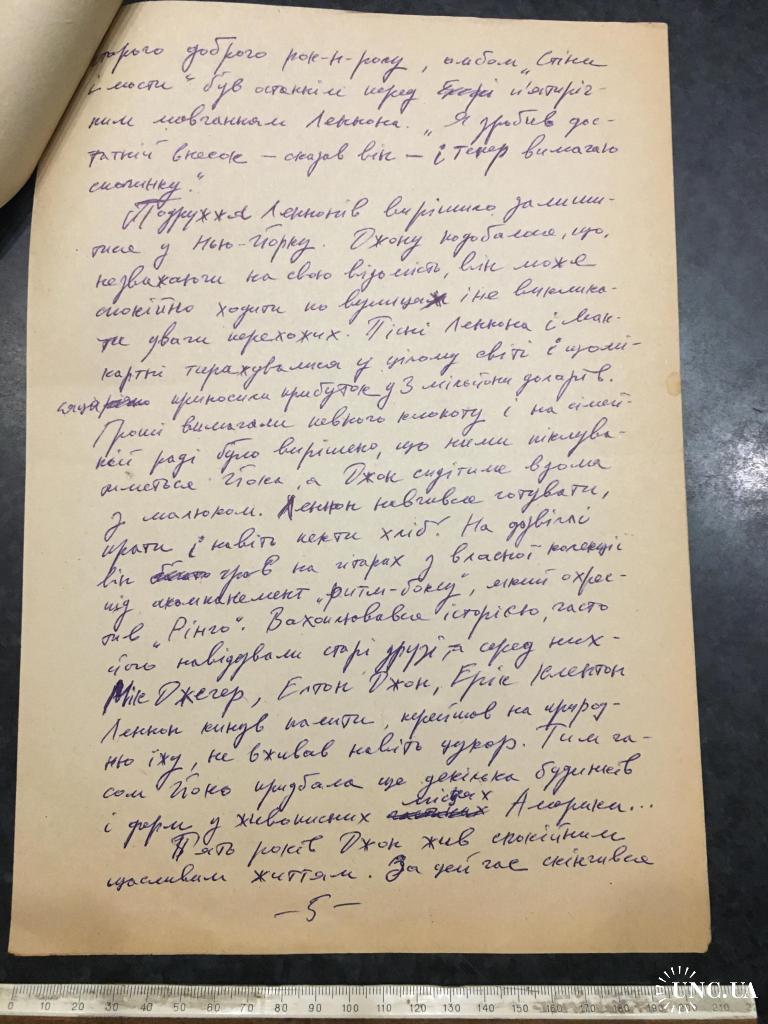 старого доброго рок-н-ролу, альбом „Стіни
і мости" був останнім перед п'ятиріч-
ним мовчанням Леннона. „Я зробив дос-
татній внесок – сказав він – і тепер вимагаю
спочинку."
Подружжя Леннонів вирішило залиши-
тися у Нью-Йорку. Джону подобалося, що,
незважаючи на свою відомість, він може
спокійно ходити по вулицях і не виклика-
ти уваги перехожих. Пісні Леннона і Мак-
картні тиражувалися у цілому світі і щомі-
сяця приносили прибуток у 3 мільйони доларів.
Гроші вимагали певного клопоту і на сімей-
ній раді було вирішено, що ними піклува-
тиметься Йоко, а Джон сидітиме вдома
з малюком. Леннон навчився готувати,
прати і навіть пекти хліб. На дозвіллі
він грав на гітарах з власної колекції
під акомпанемент „ритм-боксу", який охрес-
тив „Рінго". Захоплювався історією, часто
його навідували старі друзі, а серед них –
Мік Джегер, Елтон Джон, Ерік Клептон
Леннон кинув палити, перейшов на природ-
ню їжу, не вживав навіть цукор. Тим ча-
сом Йоко придбала ще декілька будинків
і ферм у живописних місцях Америки...
П'ять років Джон жив спокійним
щасливим життям. За цей час скінчився
– 5 –
0 10 20 30 40 50 60 70 80 90 100 110 120 130 140 150 160 170 180 190 200 210
UNC.UA